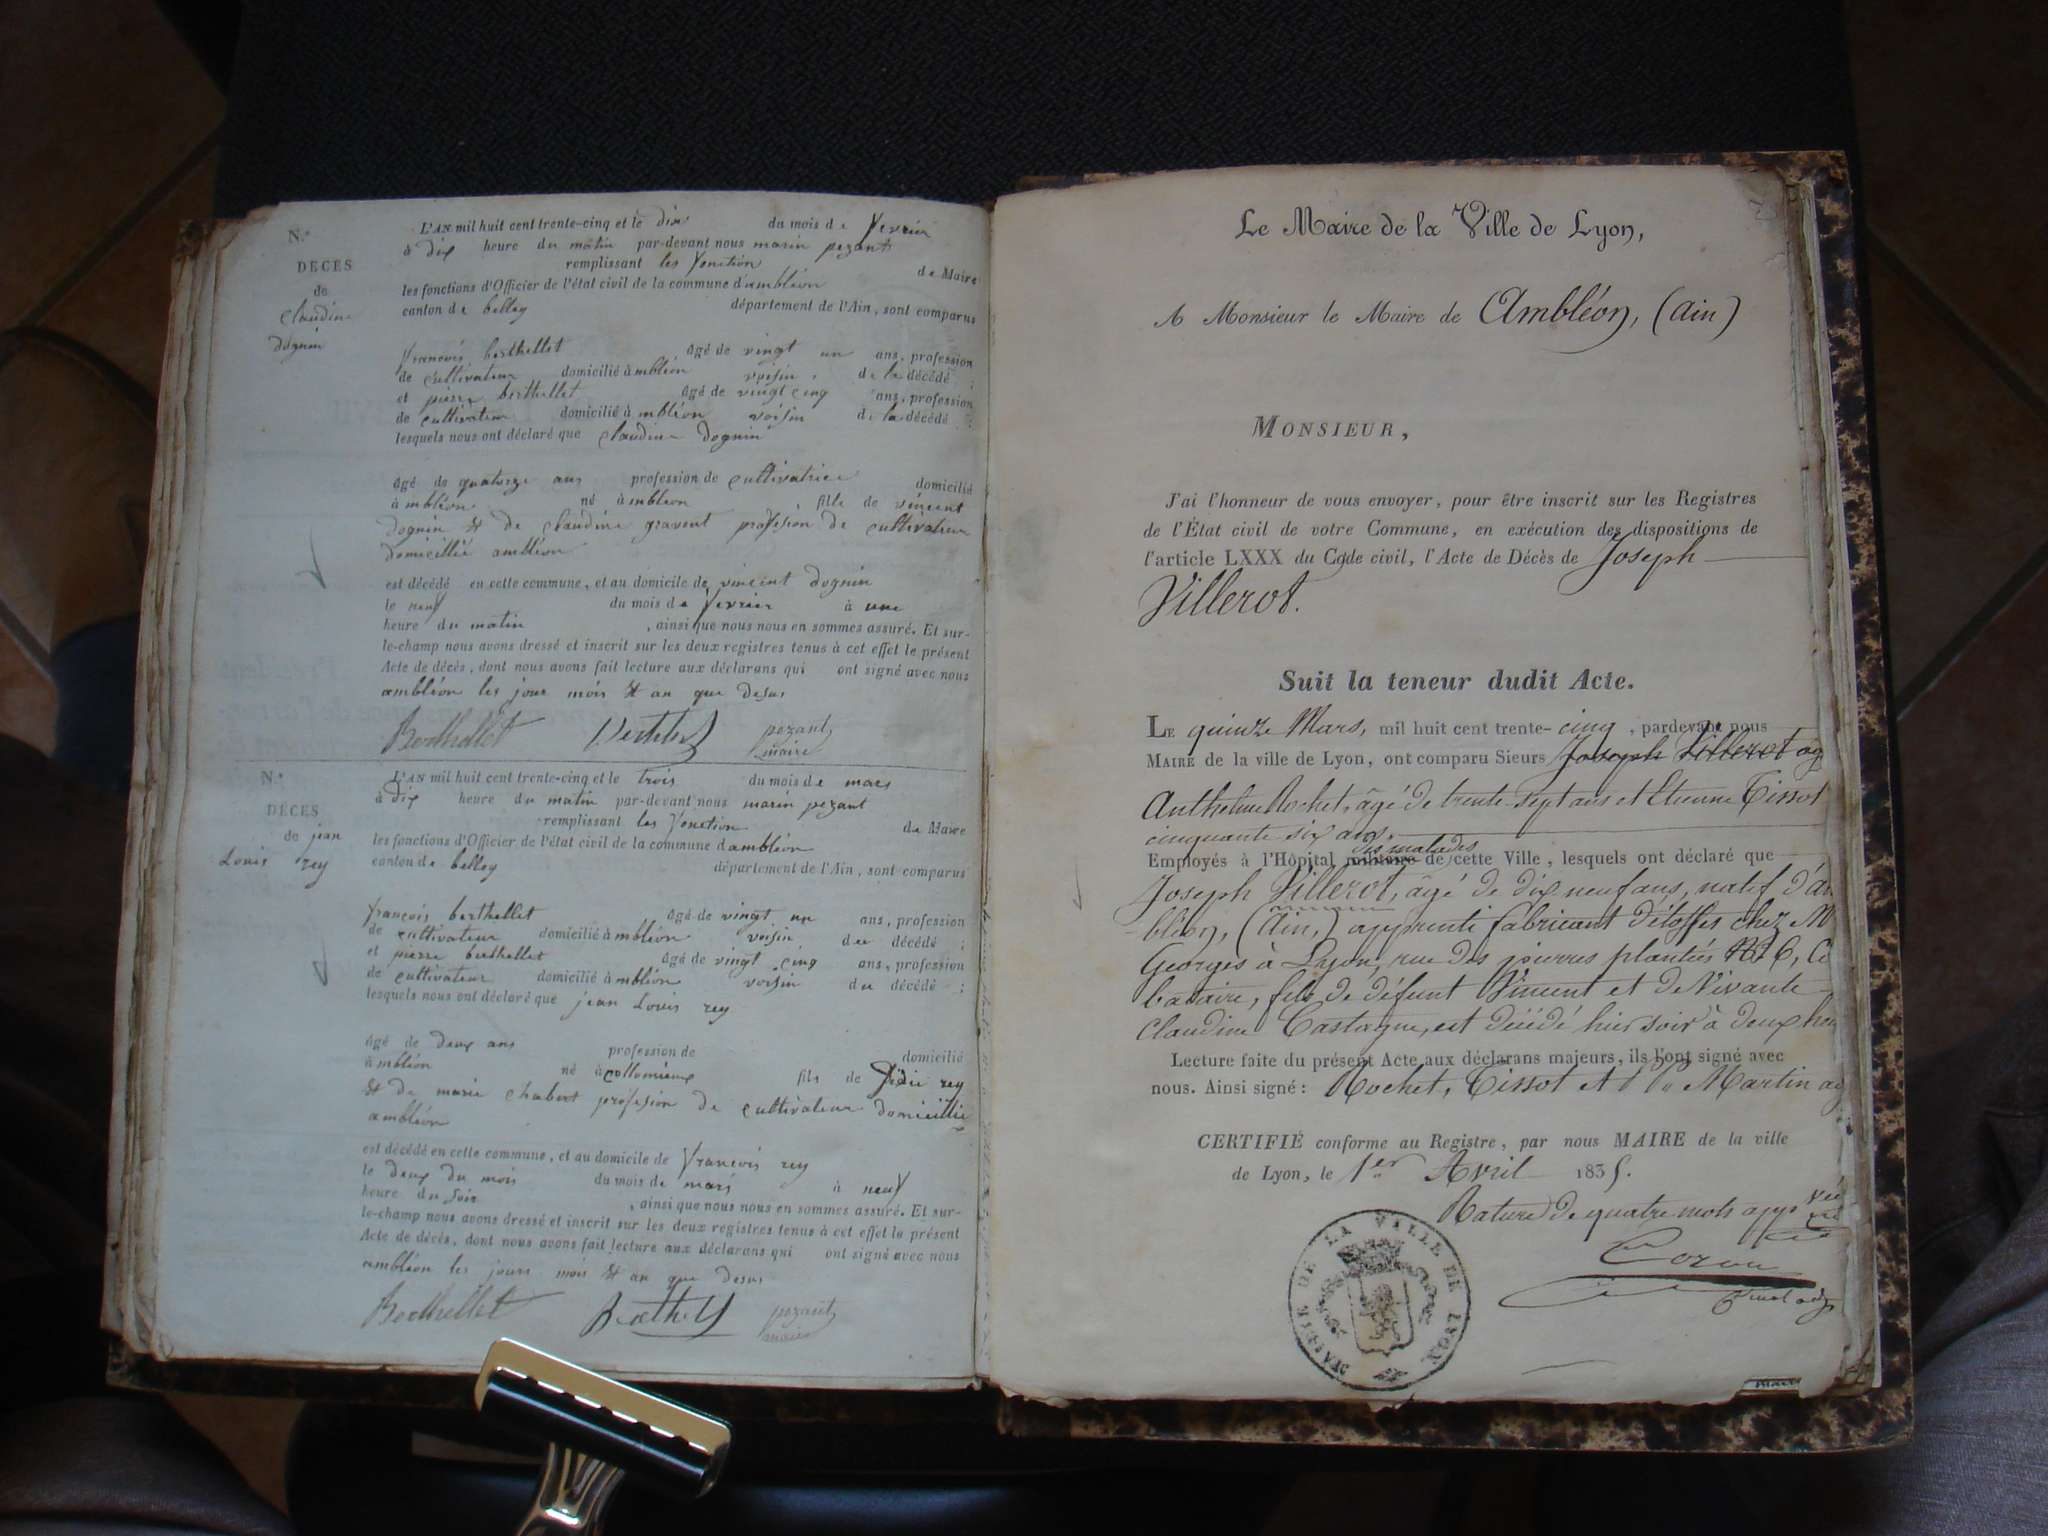 N.º
DECES
de
claudine
dognin
L'AN mil huit cent trente-cinq et le dix du mois de fevrier
à dix heure du matin par-devant nous marin pezant
remplissant les fonction de Maire
les fonctions d'Officier de l'état civil de la commune d'ambléon
canton de belley département de l'Ain, sont comparus
françois berthellet âgé de vingt un ans, profession
de cultivateur domicilié à mbléon voisin de la décédé ;
et pierre berthellet âgé de vingt cinq ans, profession
de cultivateur domicilié à mbléon voisin de la décédé ;
lesquels nous ont déclaré que claudine dognin
âgé de quatorze ans profession de cultivatrice domicilié
à mbléon né à mbleon fille de vincent
dognin et de claudine gravent profesion de cultivateur
domicillié ambléon
est décédé en cette commune, et au domicile de vincent dognin
le neuf du mois de fevrier à une
heure du matin , ainsi que nous nous en sommes assuré. Et sur-
le-champ nous avons dressé et inscrit sur les deux registres tenus à cet effet le présent
Acte de décès, dont nous avons fait lecture aux déclarans qui ont signé avec nous
ambléon les jour mois et an que desus
Berthellet pezant
maire
N.º
DÉCES
de jean
Louis rey
L'AN mil huit cent trente-cinq et le trois du mois de mars
à dix heure du matin par-devant nous marin pezant
remplissant les fonction de Maire
les fonctions d'Officier de l'état civil de la commune d'ambléon
canton de belley département de l'Ain, sont comparus
françois berthellet âgé de vingt un ans, profession
de cultivateur domicilié à mbléon voisin du décédé ;
et pierre berthellet âgé de vingt cinq ans, profession
de cultivateur domicilié à mbléon voisin du décédé ;
lesquels nous ont déclaré que jean Louis rey
âgé de deux ans profession de domicilié
à mbléon né à collomieux fils de rey
et de marie chabert profesion de cultivateur domicillié
ambléon
est décédé en cette commune, et au domicile de françois rey
le deux du mois du mois de mars à neuf
heure du soir , ainsi que nous nous en sommes assuré. Et sur-
le-champ nous avons dressé et inscrit sur les deux registres tenus à cet effet le présent
Acte de décès, dont nous avons fait lecture aux déclarans qui ont signé avec nous
ambléon les jours mois et an que desus
Berthellet pezant
maire
Le Maire de la Ville de Lyon,
A Monsieur le Maire de Ambléon, (Ain)
MONSIEUR,
J'ai l'honneur de vous envoyer, pour être inscrit sur les Registres
de l'État civil de votre Commune, en exécution des dispositions de
l'article LXXX du Code civil, l'Acte de Décès de Joseph
Villerot.
Suit la teneur dudit Acte.
LE quinze Mars, mil huit cent trente-cinq , pardevant nous
MAIRE de la ville de Lyon, ont comparu Sieurs Joseph Villerot ag
Anthelme Rochet, âgé de trente-sept ans et Etienne Tissot
cinquante six ans.
des malades
Employés à l'Hôpital militaire de cette Ville, lesquels ont déclaré que
Joseph Villerot, âgé de dix neuf ans, natif d'Am
bléon, (Ain,) apprenti fabricant d'étoffes chez M
Georges à Lyon, rue des pierres plantées 6, Cé
bataire, fils de défunt Vincent et de Vivante
Claudine Castagne, est décédé hier soir à deux heu
Lecture faite du présent Acte aux déclarans majeurs, ils l'ont signé avec
nous. Ainsi signé : Rochet, Tissot et Martin adj
CERTIFIÉ conforme au Registre, par nous MAIRE de la ville
de Lyon, le 1er Avril 1835.
Rature de quatre mots app
MAIRIE DE LA VILLE DE LYON
maire